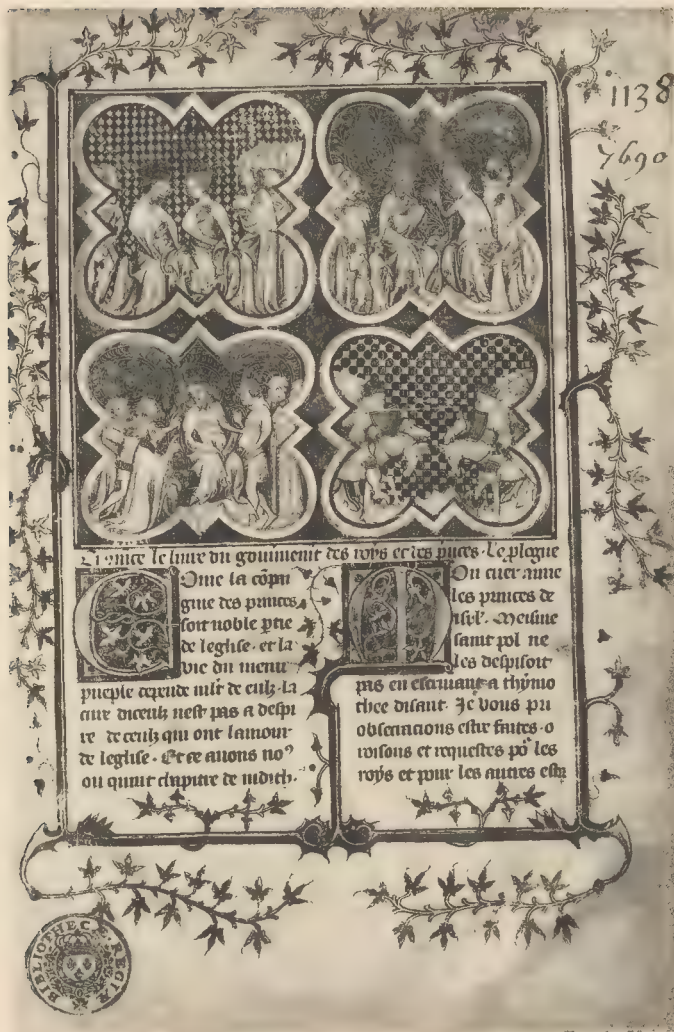 1138
7690
le liure du gouuernemt des roys et des princes. Le plogue
Ome la côpai
gnie des princes
soit noble ptie
de leglise. et la
vie du menu
pueple depende mlt de culz. la
cure diceulz nest pas a despi
re de ceulz qui ont lamour
de leglise. Et ce auons no⁹
ou quint chapitre de iudith.
On cuer aime
les princes de
isrl. Meisme
saint pol ne
les despisoit
pas en escriuant a thymo
thee disant. Je vous pri
obsecrations estre faites. o
roisons et requestes po les
roys et pour les autres estre
BIBLIOTHECÆ REGIÆ